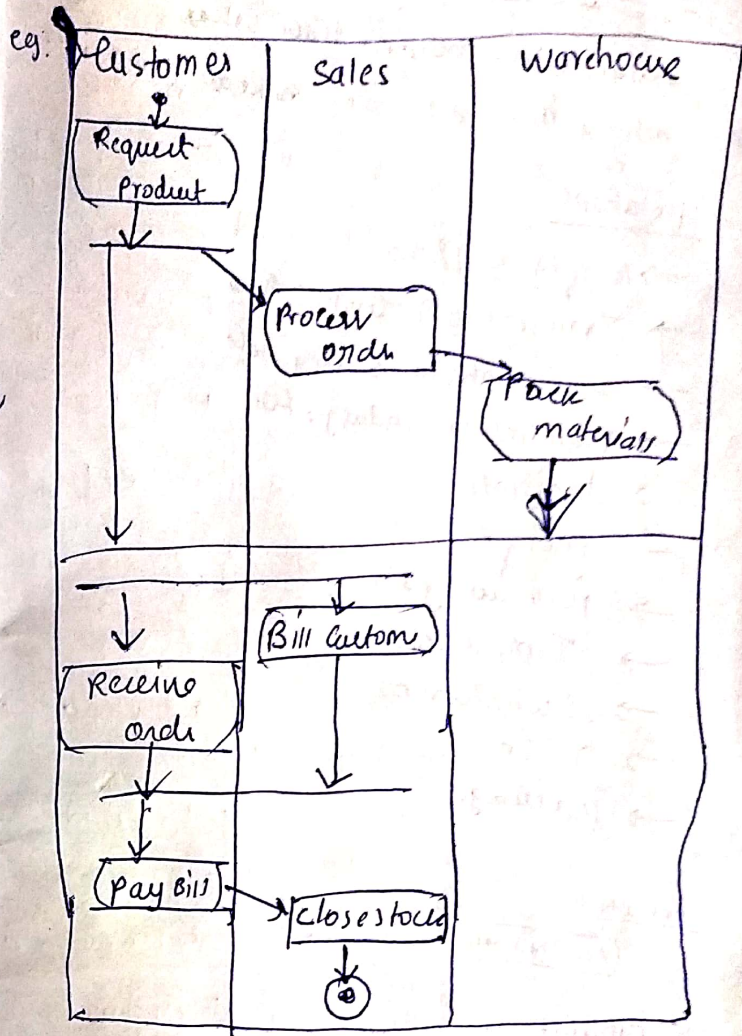 eg:
Customer
Sales
Warehouse
Request
Product
Process
order
Pack
materials
Bill Custom
Receive
order
Pay Bills
Close stock